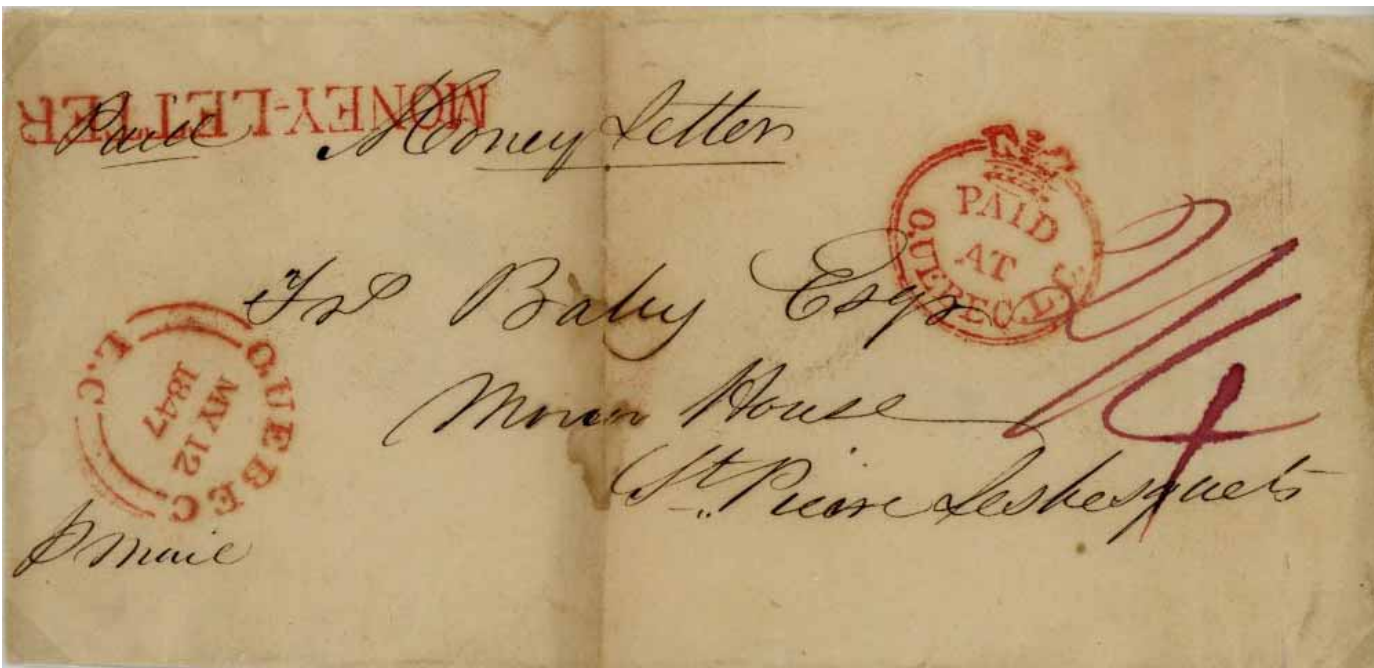 MONEY-LETTER
Paid Money Letter
PAID
AT
QUEBEC L.C.
Baby Esqr
House
2/4
St. Pierre Lesbesquets
QUEBEC
L.C
MY 12
1847
p mail